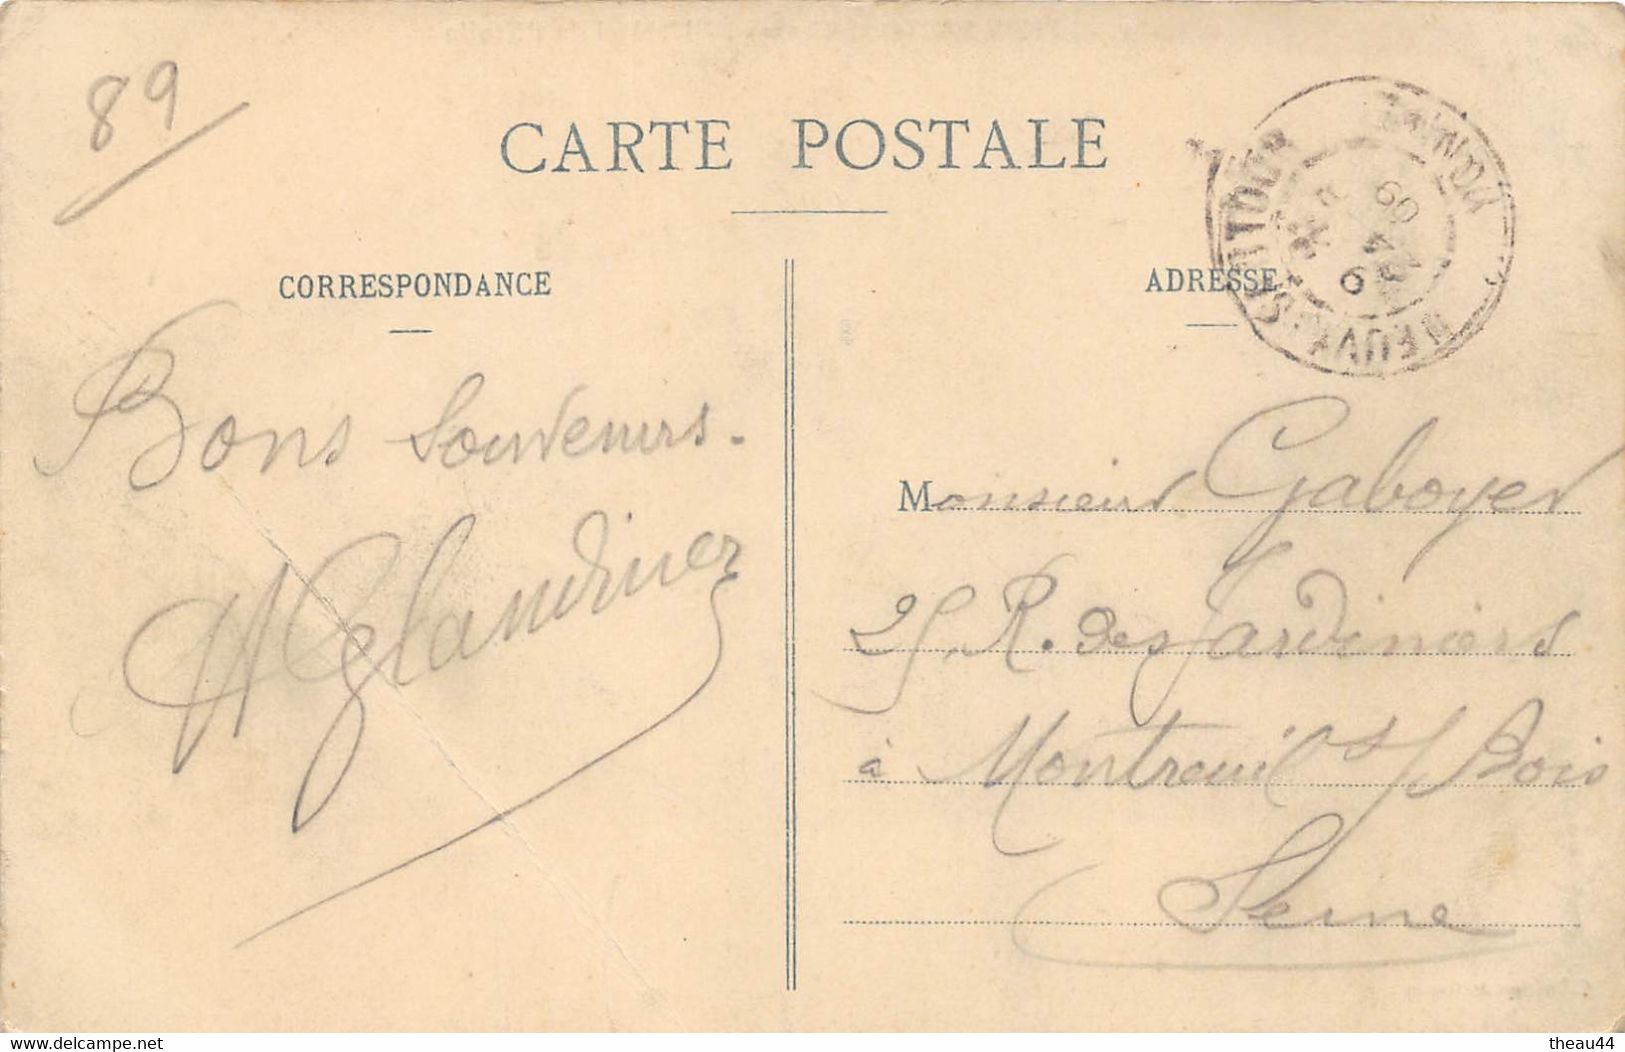 89
CARTE POSTALE
CORRESPONDANCE
ADRESSE
Bons Souvenirs.
Monsieur Gaboyer
25, R. des Jardiniers
à Montreuil s/ Bois
Seine
NEUVY-SAUTOUR
YONNE
9
4
09
www.delcampe.net
theau44